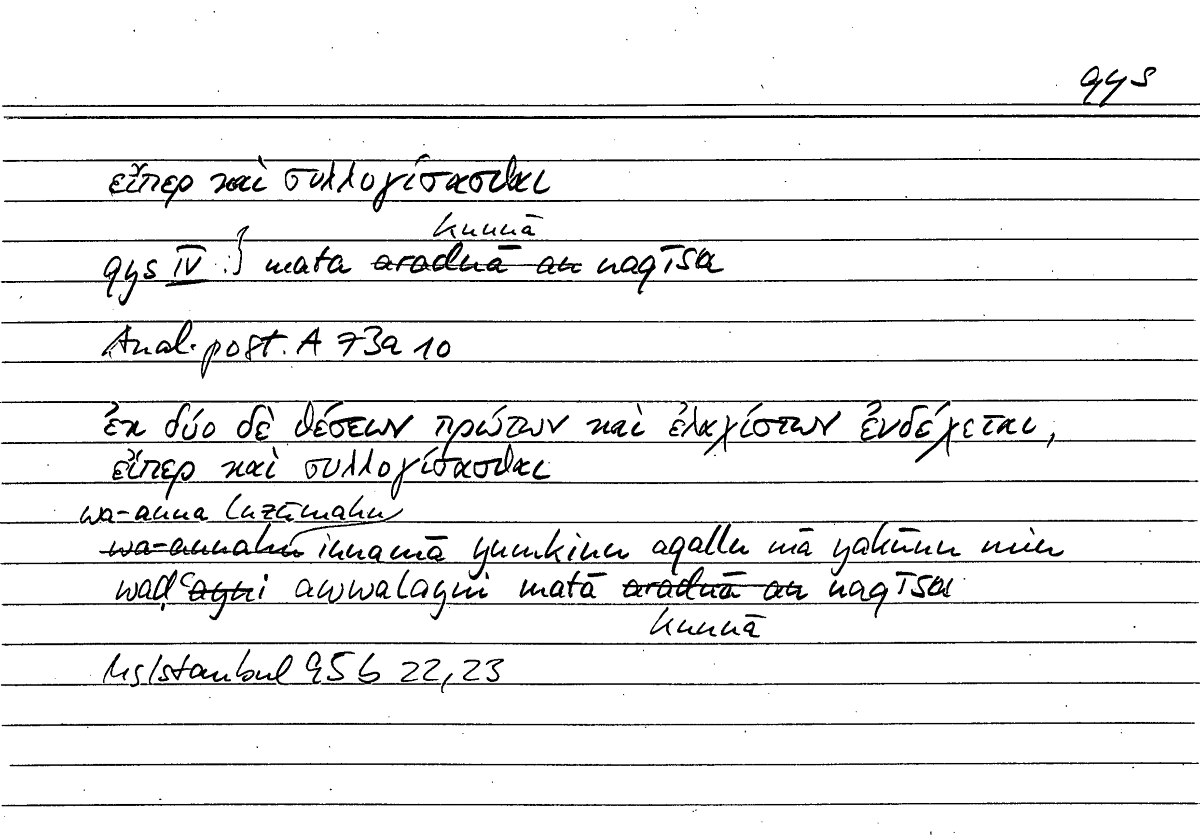 qys
εἴπερ καὶ συλλογίσασθαι
kunnā
qys IV :} mata aradnā an naqīsa
Anal. post. A 73a 10
ἐκ δύο δὲ θέσεων πρώτων καὶ ἐλαχίστων ἐνδέχεται,
εἴπερ καὶ συλλογίσασθαι
wa-anna luzūmahu
wa-annahu innamā yumkinu aqallu mā yakūnu min
waḍʿayni awwalayni matā aradnā an naqīsa
kunnā
Ms Istanbul 95b 22,23